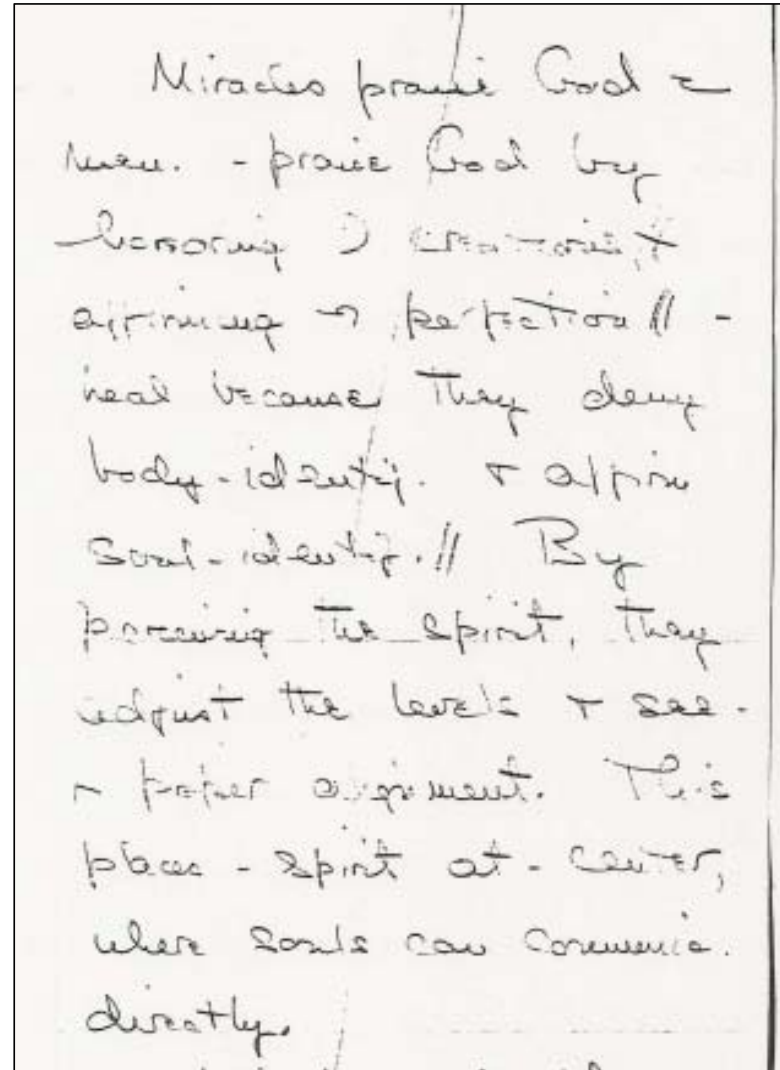 Miracles praise God &
men. - praise God by
honoring creations, &
affirming perfection // -
heal because they deny
body-identity. & affirm
Soul-identity. // By
perceiving the spirit, they
adjust the levels & see -
proper alignment. This
places - spirit at - center,
where Souls can communic.
directly.